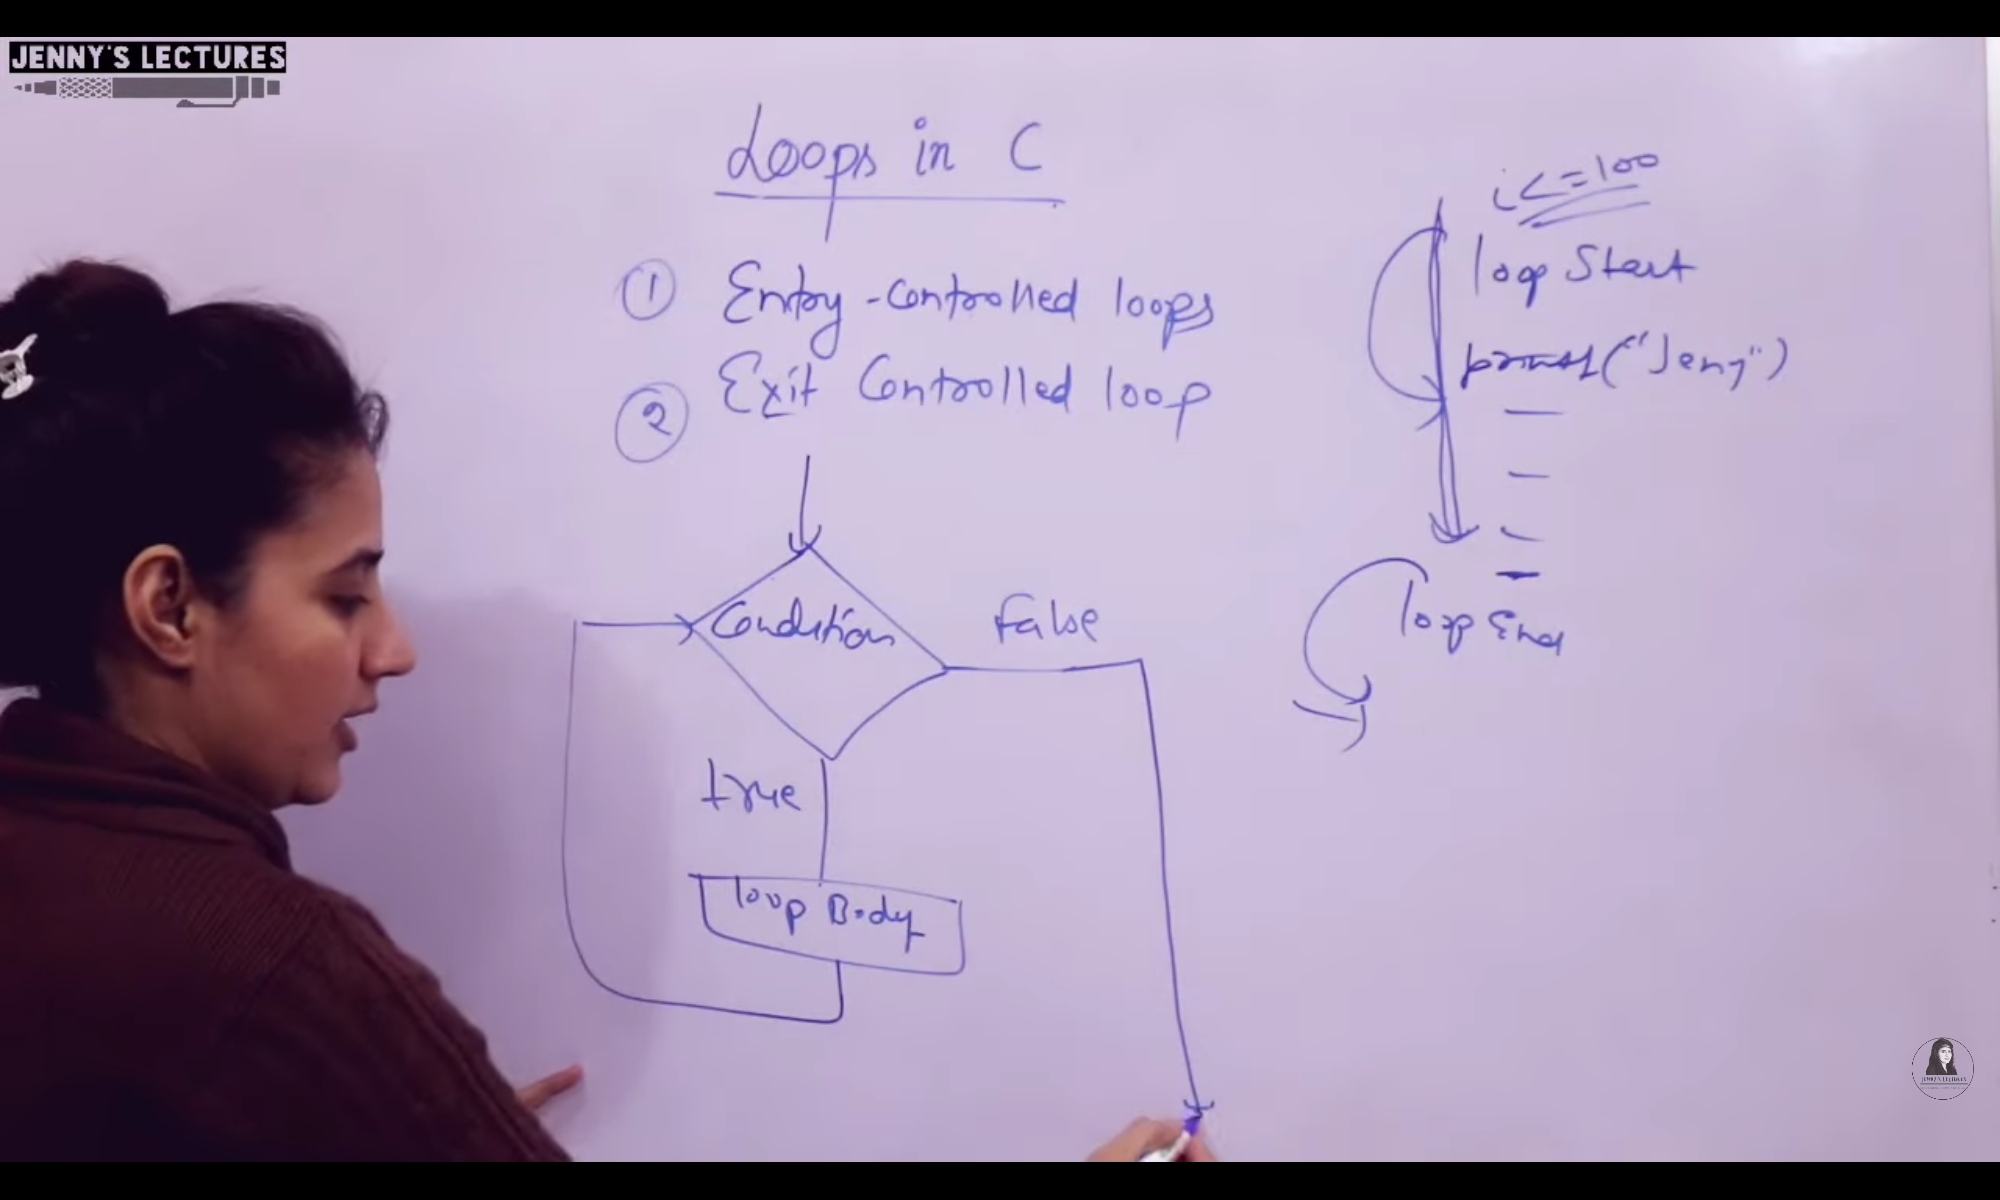 JENNY'S LECTURES
Loops in C
① Entry-Controlled loops
② Exit Controlled loop
Condition
False
true
loop Body
i<=100
loop Start
printf("Jeny")
loop End
JENNY'S LECTURES